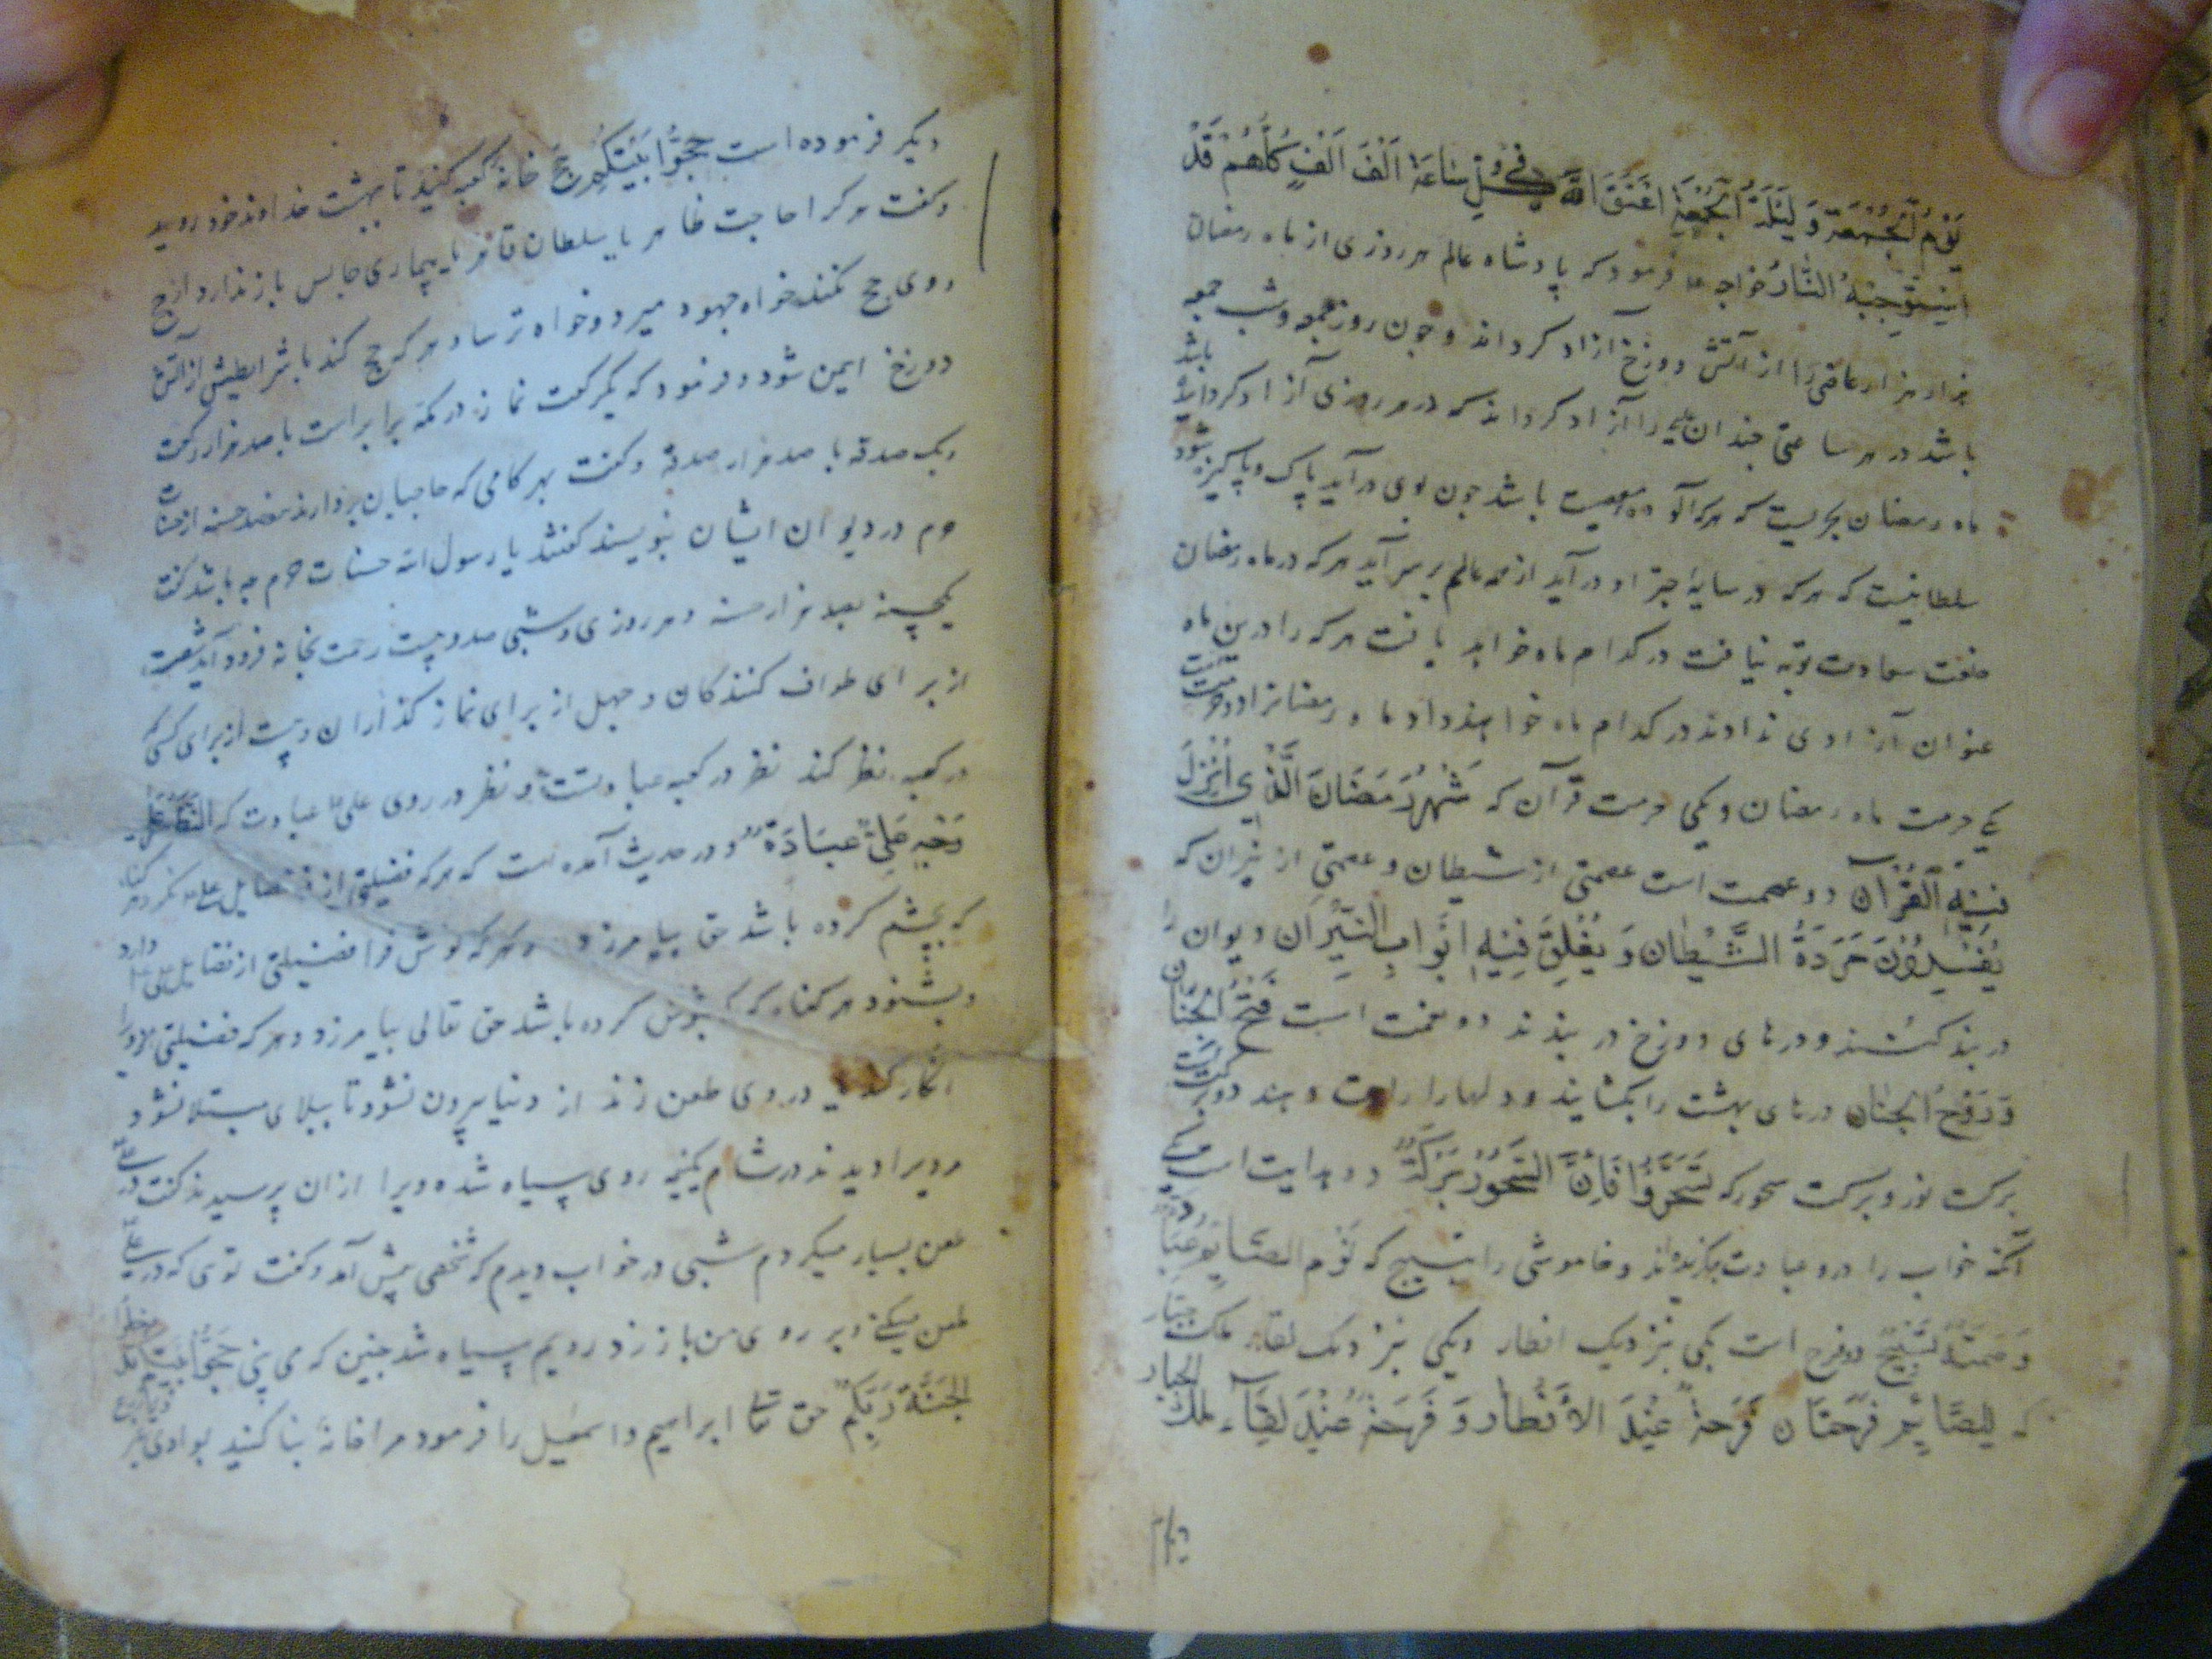 يَوْمُ الْجُمُعَةِ وَ لَيْلَةُ الْجُمُعَةِ اَعْتَقَ اللّٰهُ فِي كُلِّ سَاعَةٍ اَلْفَ اَلْفٍ كُلُّهُمْ قَدْ
اسْتَوْجَبَهُ النَّارُ خواجه فرمود که پادشاه عالم هر روزی از ماه رمضان
هزار هزار عاصی را از آتش دوزخ آزاد کرداند و جون روز جمعه و شب جمعه
باشد در هر ساعتی جندان را آزاد کرداند که در هر روزی آزاد کردانیده باشد
ماه رمضان بحریست که هر که آلوده معصیت باشد جون بوی درآید پاک و پاکیزه شود
سلطانیست که هر که در سایهٔ چتر او درآید از همه عالم بر سر آید هر که در ماه رمضان
خلعت سعادت توبه نیافت در کدام ماه خواهد یافت هر که را درین ماه
عنوان آزادی ندادند در کدام ماه خواهند داد ماه رمضانرا دو حرمتست
یکی حرمت ماه رمضان و یکی حرمت قرآن که شَهْرُ رَمَضَانَ الَّذِي اُنْزِلَ
فِيهِ الْقُرْآن دو عصمت است عصمتی از شیطان و عصمتی از نیران که
مَرَدَةُ الشَّيْطان وَ يُغْلِقَ فِيهِ اَبْوَابِ النِّيْرَان دیوان را
در بند کشند و درهای دوزخ در بندند دو نعمت است فَتْحُ الْجِنَان
وَ رَوْحُ الْجنَان درهای بهشت را بکشایند و دلها را راحت دهند دو برکتست
برکت نور و برکت سحور که تَسَحَّرُوا فَاِنَّ السَّحُوْرَ بَرَكَةٌ دو هدایت است یکی
آنکه خواب را درو عبادت و خاموشی را تسبیح که نَوْمُ الصَّايِمِ عِبَادَةٌ
وَ صَمْتُهُ تَسْبِيْحٌ دو فرح است یکی بنزدیک افطار و یکی بنزدیک لقاء ملک جبّار
که لِلصَّايِمِ فَرْحَتَان فَرْحَةٌ عِنْدَ الْاَفْطَار وَ فَرْحَةٌ عِنْدَ لِقَآءِ ملك الجبار
دیگر فرموده است حَجُّوا بَيْتَكُمْ حج خانهٔ کعبه کنید تا ببهشت خداوند خود روید
و کفت هر کرا حاجت ظاهر یا سلطان قاهر یا بیماری حابس باز ندارد از حج
روی حج نکند خواه جهود میرد و خواه ترسا و هر که حج کند با شرایطش از آتش
دوزخ ایمن شود و فرمود که یکرکعت نماز در مکه برابر است با صد هزار رکعت
و یک صدقه با صد هزار صدقه و کفت بهر کامی که حاجیان بردارند هفصد حسنه از حسنات
حرم در دیوان ایشان بنویسند کفتند یا رسول الله حسنات حرم چه باشد کفت
یکحسنه بصد هزار حسنه و هر روزی و شبی صد و بیست رحمت بخانه فرود آید شصت
از برای طواف کنندکان و جهل از برای نماز کذاران و بیست از برای کسی که
در کعبه نظر کند نظر در کعبه عبادتست و نظر در روی علی عبادت که النَّظَرُ عَلٰی
وَجْهِ عَلِيٍّ عِبَادَةٌ و در حدیث آمده است که هر که فضیلتی از فضایل علی نکرد هر کناه
که بچشم کرده باشد حق بیامرزد و هر که کوش فرا فضیلتی از فضایل علی دارد
و بشنود هر کناه که بکوش کرده باشد حق تعالی بیامرزد و هر که فضیلتی او را
انکار کند یا در وی طعن زند از دنیا بیرون نشود تا ببلای مبتلا نشود
مردیرا دیدند در شام یکنیمه روی سیاه شده ویرا از ان پرسیدند کفت در علی
طعن بسیار میکردم شبی در خواب دیدم که شخصی پیش آمد و کفت توی که در علی
طعن میکنی و بر روی من باز زد رویم سیاه شد جنین که می بینی حَجُّوا بَيْتَكُمْ
الْجَنَّةَ رَبِّكُمْ حق تعالی ابراهیم و اسمعیل را فرمود مرا خانهٔ بنا کنید بوادی